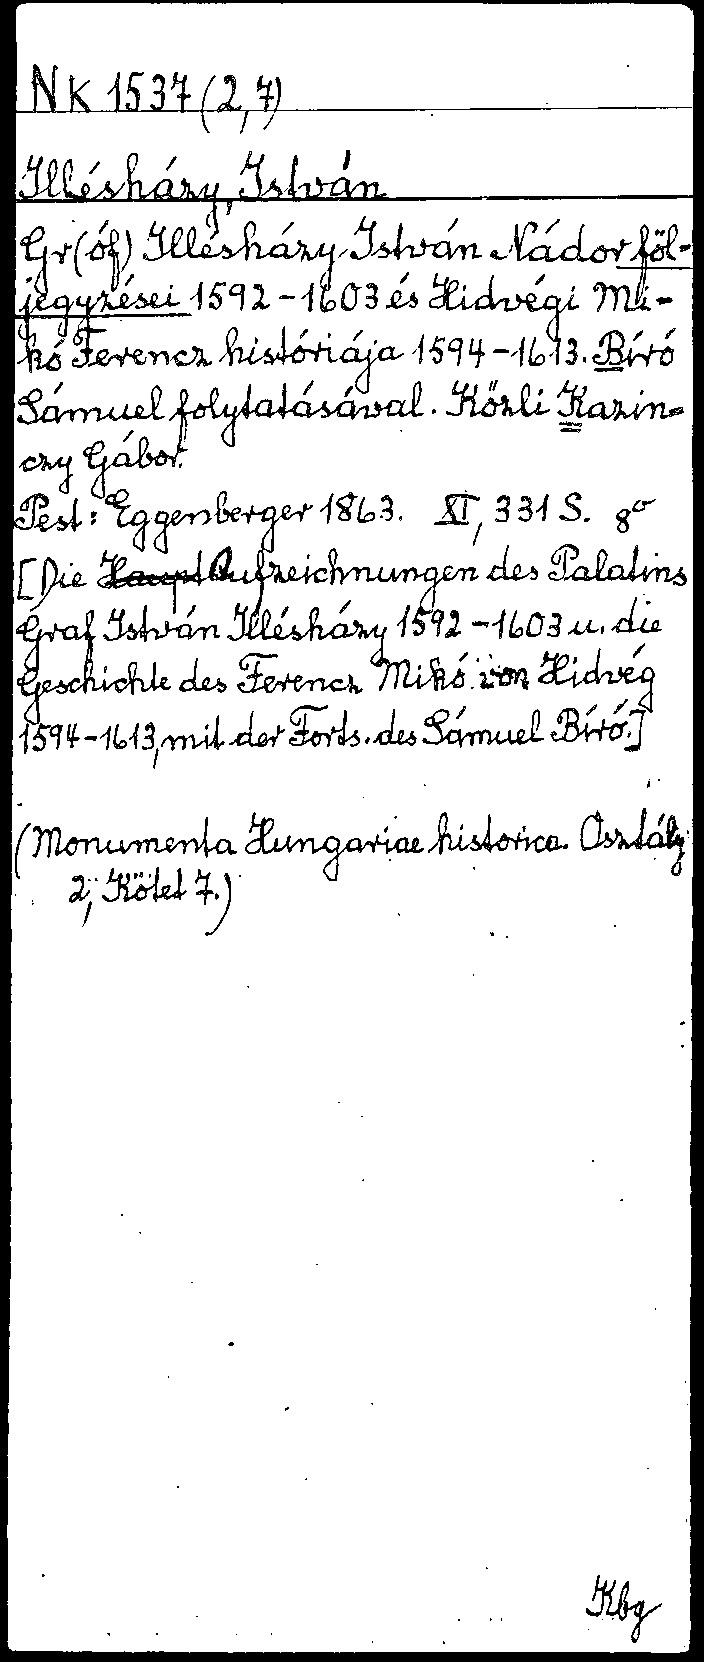 NK 1537 (2,7)
Illésházy, István
Gr(óf) Illésházy István Nádor föl-
jegyzései 1592-1603 és Hidvégi Mi-
kó Ferencz históriája 1594-1613. Bíró
Sámuel folytatásával. Közli Kazin-
czy Gábor.
Pest: Eggenberger 1863. XI, 331 S. 8°
[Die Haupt Aufzeichnungen des Palatins
Graf István Illésházy 1592-1603 u. die
Geschichte des Ferencz Mikó von Hidvég
1594-1613, mit der Forts. des Sámuel Bíró.]
(Monumenta Hungariae historica. Osztály
2, Kötet 7.)
Kbg